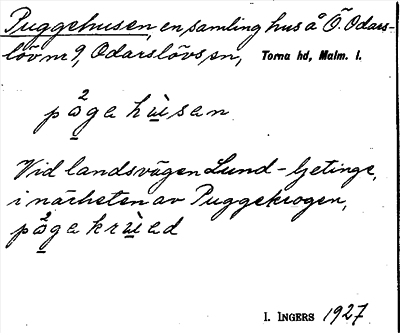 Puggehusen, en samling hus å Ö. Odars-
löv nr 9, Odarslövs sn, Torna hd, Malm. l.
Vid landsvägen Lund - Getinge,
i närheten av Puggekrogen,
I. INGERS 1927